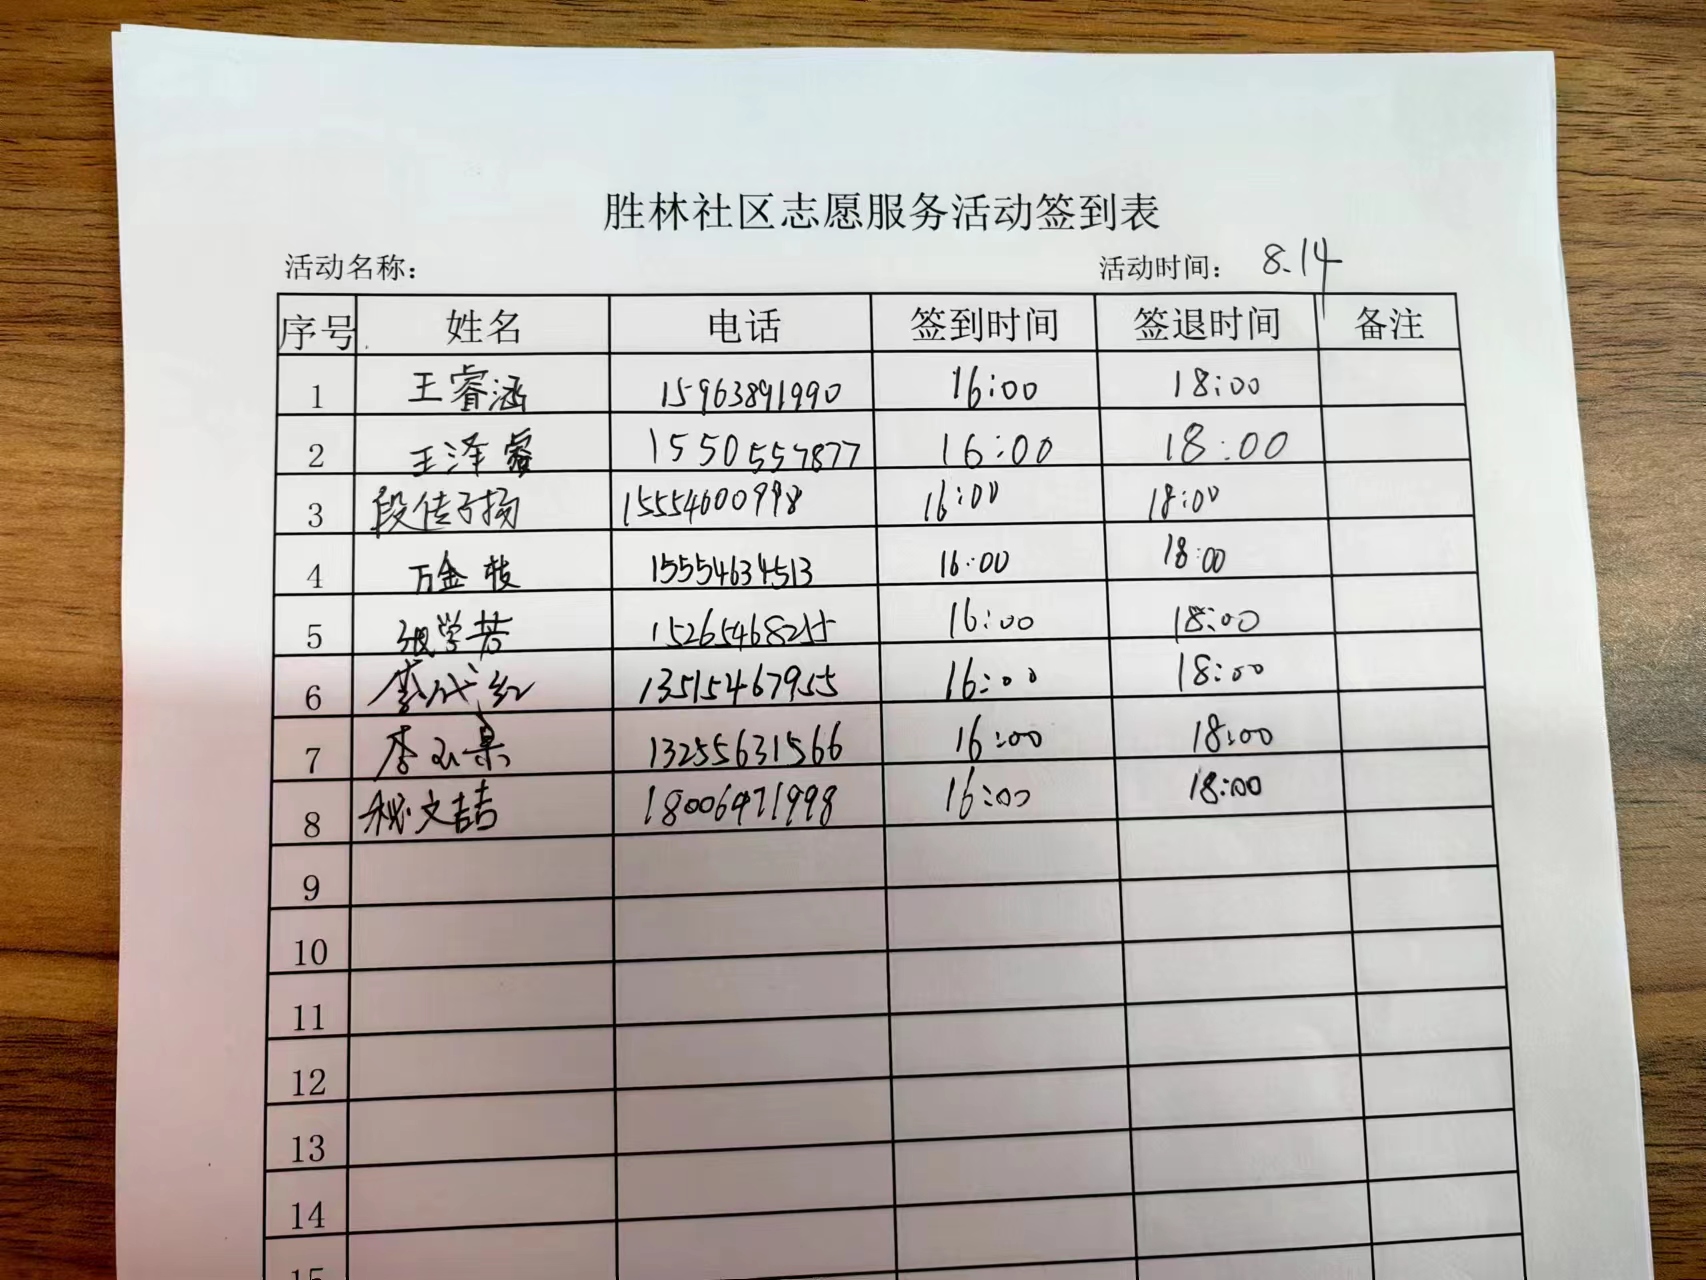 胜林社区志愿服务活动签到表
活动名称： 活动时间： 8.14
序号 姓名 电话 签到时间 签退时间 备注
1 王睿涵 15963891990 16:00 18:00
2 王泽睿 15505557877 16:00 18:00
3 段佳子扬 15554600998 16:00 18:00
4 万金枝 15554634513 16:00 18:00
5 张学芳 15265468255 16:00 18:00
6 李代红 13515467955 16:00 18:00
7 李玉果 13255631566 16:00 18:00
8 秘文喆 18006471998 16:00 18:00
9
10
11
12
13
14
15